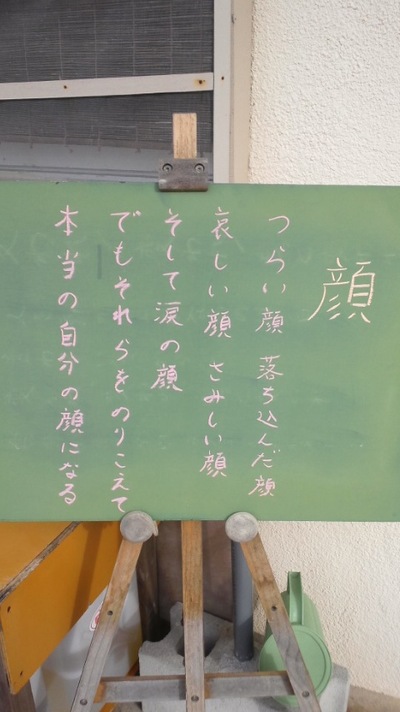 顔
つらい顔 落ち込んだ顔
哀しい顔 さみしい顔
そして涙の顔
でもそれらをのりこえて
本当の自分の顔になる